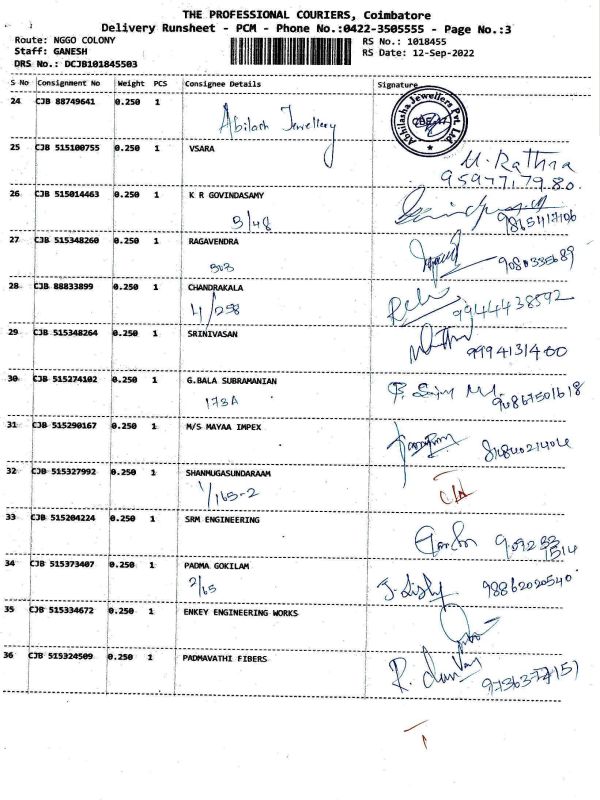 THE PROFESSIONAL COURIERS, Coimbatore
Delivery Runsheet - PCM - Phone No.:0422-3505555 - Page No.:3
Route: NGGO COLONY
Staff: GANESH
DRS No.: DCJB101845503
RS No.: 1018455
RS Date: 12-Sep-2022
S No Consignment No Weight PCS Consignee Details Signature
24 CJB 88749641 0.250 1 Abilash Jewellery
Abhilasha Jewellers Pvt. Ltd.
25 CJB 515100755 0.250 1 VSARA
M. Rathna
95977179.80.
26 CJB 515014463 0.250 1 K R GOVINDASAMY
3/48
9865417106
27 CJB 515348260 0.250 1 RAGAVENDRA
303
9080335689
28 CJB 88833899 0.250 1 CHANDRAKALA
4/258
9944438592
29 CJB 515348264 0.250 1 SRINIVASAN
9994131400
30 CJB 515274102 0.250 1 G.BALA SUBRAMANIAN
173A
31 CJB 515290167 0.250 1 M/S MAYAA IMPEX
32 CJB 515327992 0.250 1 SHANMUGASUNDARAAM
1/165-2
33 CJB 515204224 0.250 1 SRM ENGINEERING
34 CJB 515373407 0.250 1 PADMA GOKILAM
2/65
9886202540
35 CJB 515334672 0.250 1 ENKEY ENGINEERING WORKS
36 CJB 515324509 0.250 1 PADMAVATHI FIBERS